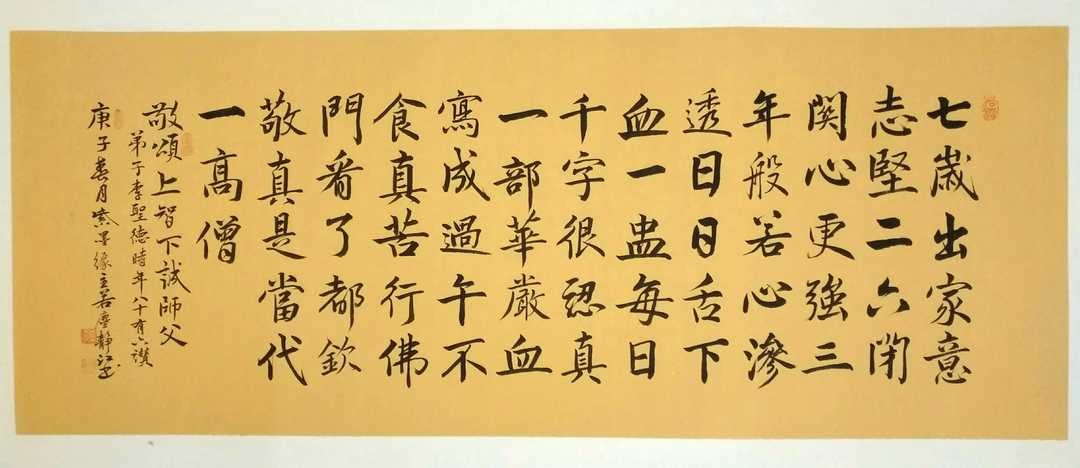 七歲出家意
志堅二六閉
関心更強三
年般若心滲
透日日舌下
血一盅每日
千字很認真
一部華嚴血
寫成過午不
食真苦行佛
門看了都欽
敬真是當代
一高僧
敬頌上智下誠師父
弟子李聖德時年八十有六讚
庚子春月紫墨緣主若塵靜江書